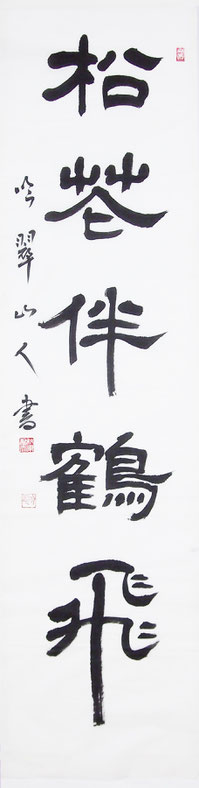 松花伴鶴飛
吟翠山人書